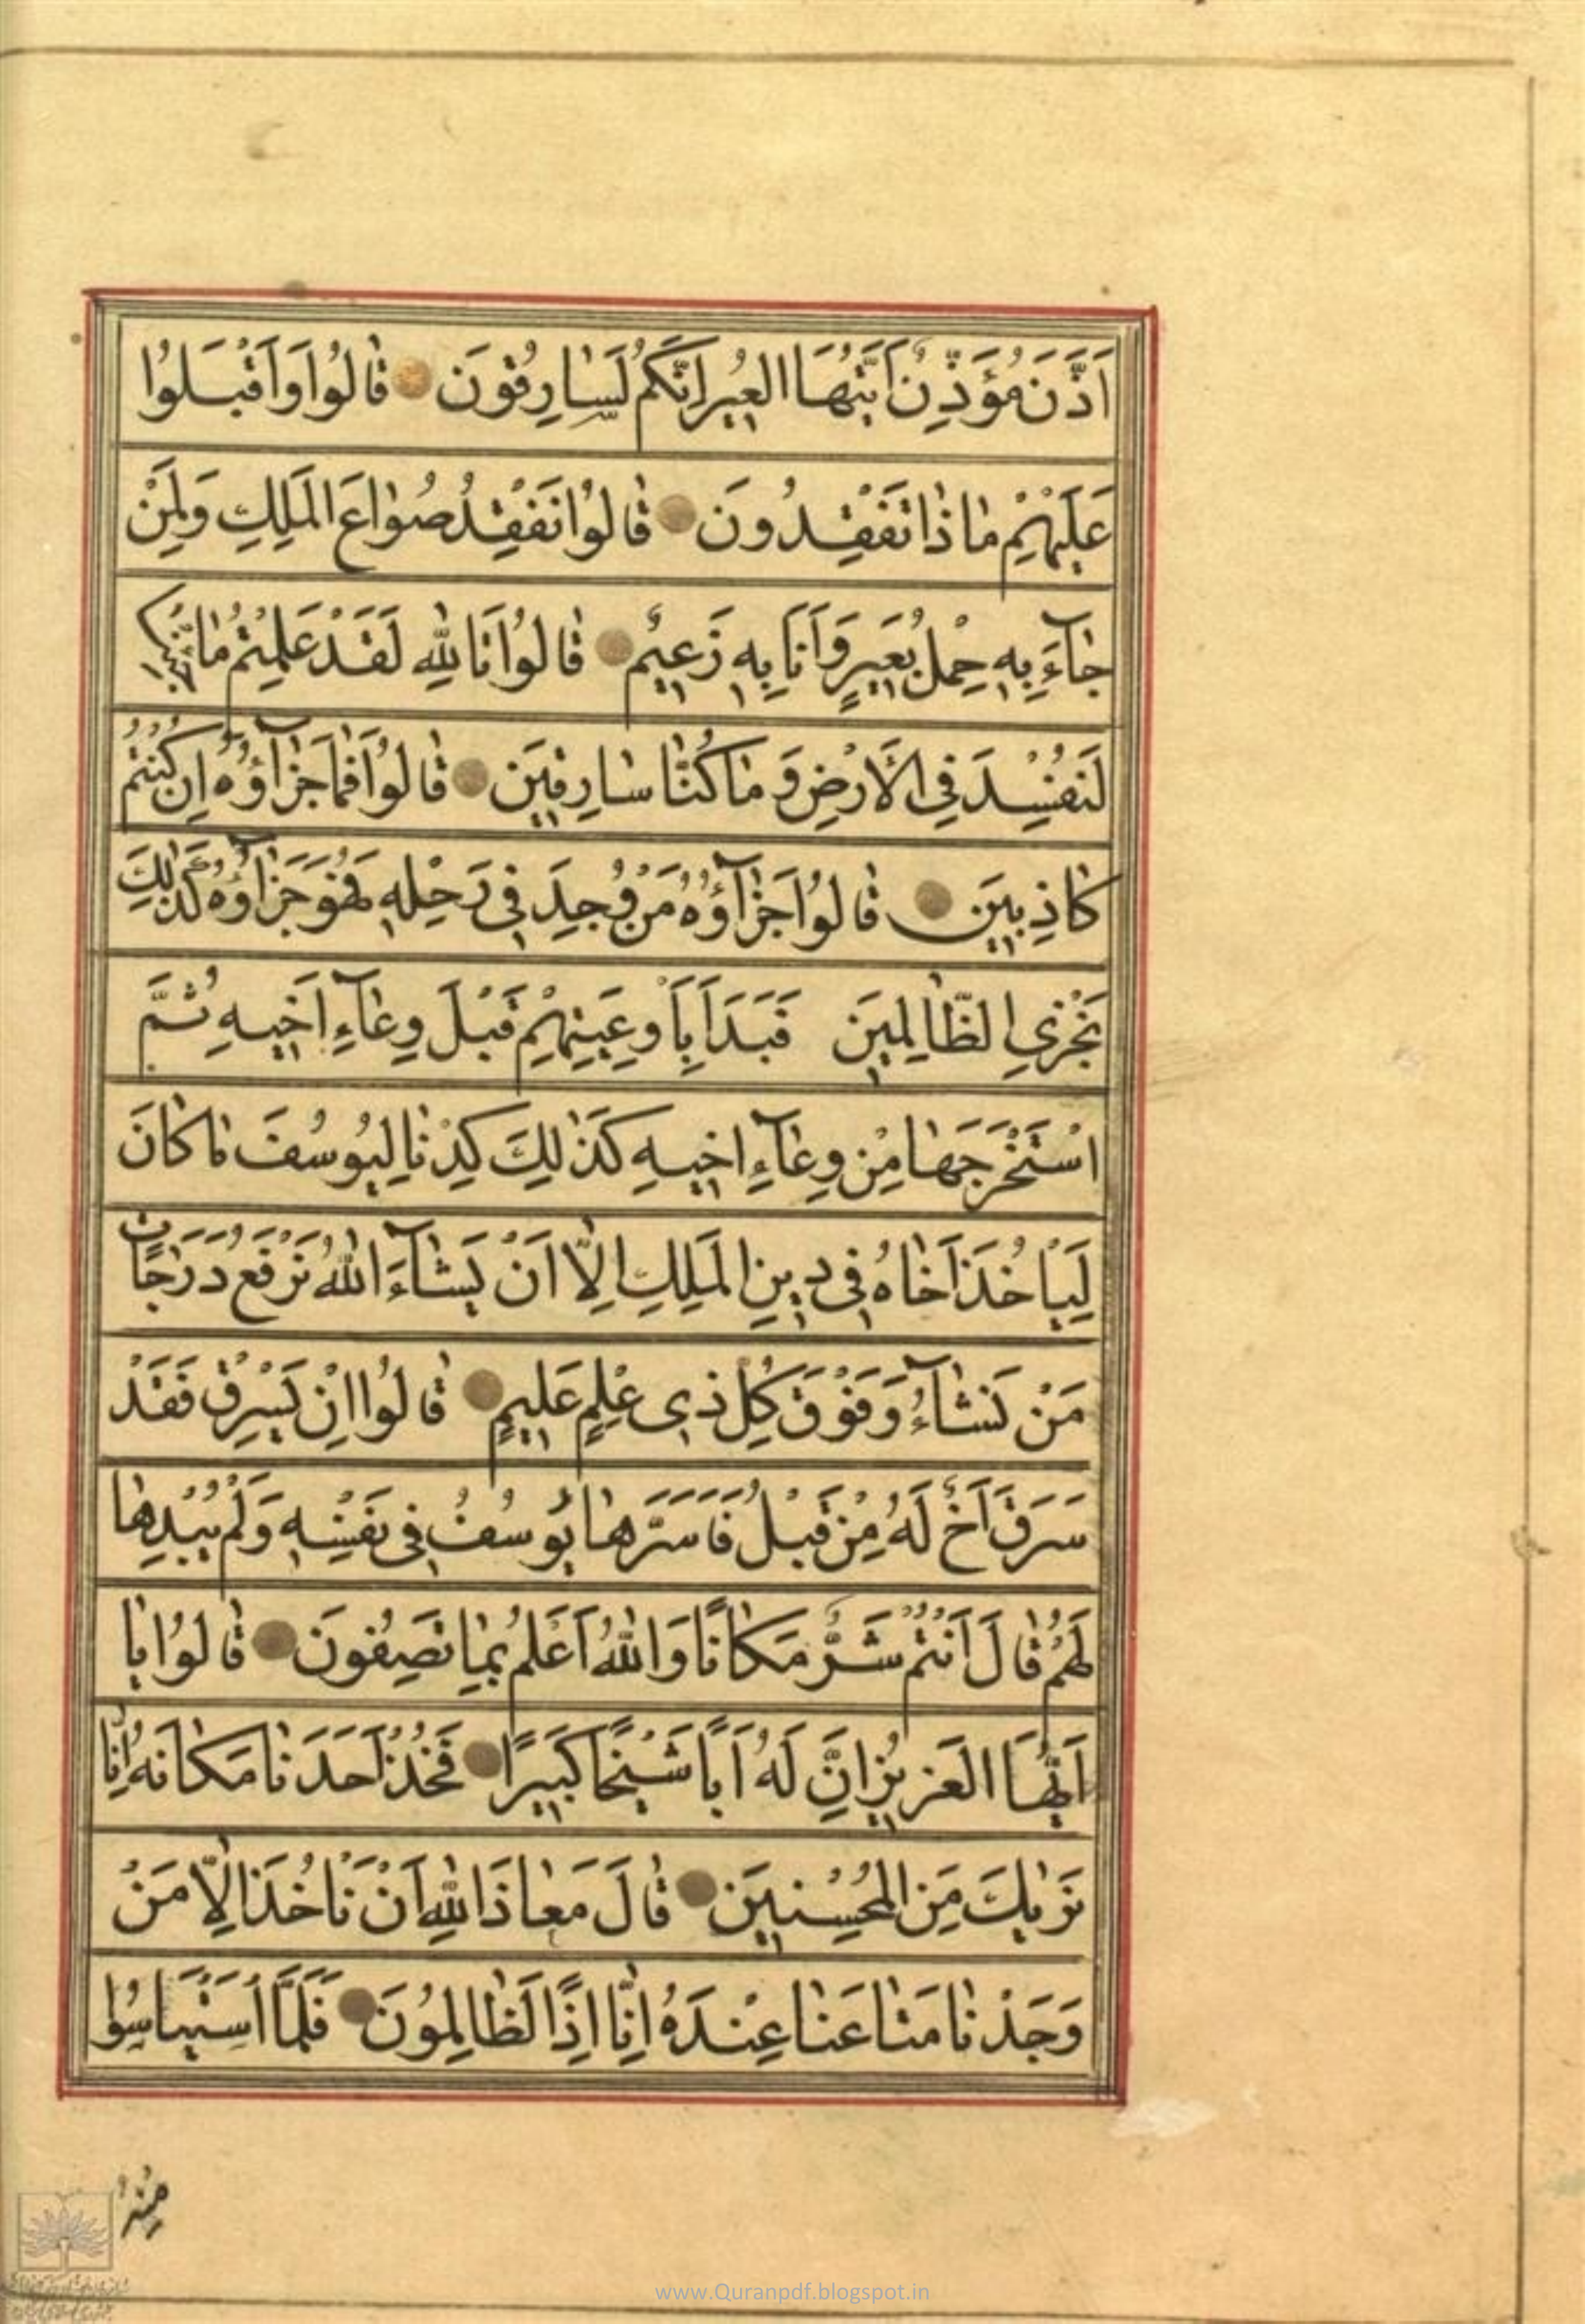 اَذَّنَ مُؤَذِّنٌ اَيَّتُهَا الْعِيرُ اِنَّكُمْ لَسَارِقُونَ قَالُوا وَاَقْبَلُوا
عَلَيْهِمْ مَاذَا تَفْقِدُونَ قَالُوا نَفْقِدُ صُوَاعَ الْمَلِكِ وَلِمَنْ
جَآءَ بِهِ حِمْلُ بَعِيرٍ وَاَنَا بِهِ زَعِيمٌ قَالُوا تَاللّٰهِ لَقَدْ عَلِمْتُمْ مَا جِئْنَا
لِنُفْسِدَ فِي الْاَرْضِ وَمَا كُنَّا سَارِقِينَ قَالُوا فَمَا جَزَآؤُهُ اِنْ كُنْتُمْ
كَاذِبِينَ قَالُوا جَزَآؤُهُ مَنْ وُجِدَ فِي رَحْلِهِ فَهُوَ جَزَآؤُهُ كَذٰلِكَ
نَجْزِي الظَّالِمِينَ فَبَدَاَ بِاَوْعِيَتِهِمْ قَبْلَ وِعَآءِ اَخِيهِ ثُمَّ
اسْتَخْرَجَهَا مِنْ وِعَآءِ اَخِيهِ كَذٰلِكَ كِدْنَا لِيُوسُفَ مَا كَانَ
لِيَاْخُذَ اَخَاهُ فِي دِينِ الْمَلِكِ اِلَّا اَنْ يَشَآءَ اللّٰهُ نَرْفَعُ دَرَجَاتٍ
مَنْ نَشَآءُ وَفَوْقَ كُلِّ ذِي عِلْمٍ عَلِيمٌ قَالُوا اِنْ يَسْرِقْ فَقَدْ
سَرَقَ اَخٌ لَهُ مِنْ قَبْلُ فَاَسَرَّهَا يُوسُفُ فِي نَفْسِهِ وَلَمْ يُبْدِهَا
لَهُمْ قَالَ اَنْتُمْ شَرٌّ مَكَانًا وَاللّٰهُ اَعْلَمُ بِمَا تَصِفُونَ قَالُوا يَا
اَيُّهَا الْعَزِيزُ اِنَّ لَهُ اَبًا شَيْخًا كَبِيرًا فَخُذْ اَحَدَنَا مَكَانَهُ اِنَّا
نَرٰيكَ مِنَ الْمُحْسِنِينَ قَالَ مَعَاذَ اللّٰهِ اَنْ نَاْخُذَ اِلَّا مَنْ
وَجَدْنَا مَتَاعَنَا عِنْدَهُ اِنَّا اِذًا لَظَالِمُونَ فَلَمَّا اسْتَيْاَسُوا
مِنْهُ
www.Quranpdf.blogspot.in